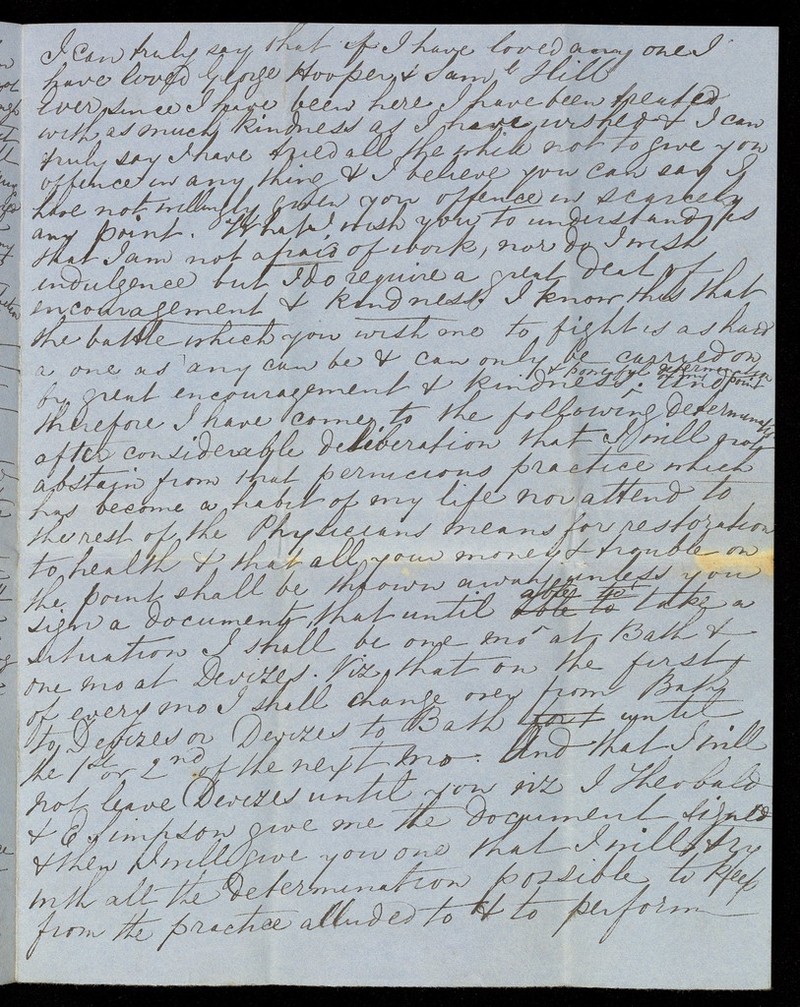 I can truly say that if I have loved any one I
have loved George Hooper & Saml Hill
Ever since I have been here I have been treated
with as much kindness as I have wished & I can
truly say I have tried all the while not to give you
offence in any thing & I believe you can say I
have not willingly given you offence in scarcely
any point. What I wish you to understand is
that I am not afraid of work, nor do I wish
indulgence but I do require a great deal of
encouragement & kindness. I know this that
the battle which you wish me to fight is as hard
a one as any can be & can only be carried on
& powerful determination
by great encouragement & kindness. And
of mind point
therefore I have come to the following determination
after considerable deliberation that I will not
abstain from that pernicious practice which
has become a habit of my life nor attend to
the rest of the Physicians means for restoration
to health & that all your money & trouble on
the point shall be thrown away unless you
sign a document, that until able to take a
situation I shall be one mo at Bath &
one mo at Devizes. Viz, that on the first
of every mo I shall change over from Bath
to Devizes or Devizes to Bath until
the 1st or 2nd of the next mo. And that I will
not leave Devizes until you viz I Theobald
& E Simpson give me the document signed
& then I will give you one that I will try
with all the determination possible to keep
from the practice alluded to & to perform